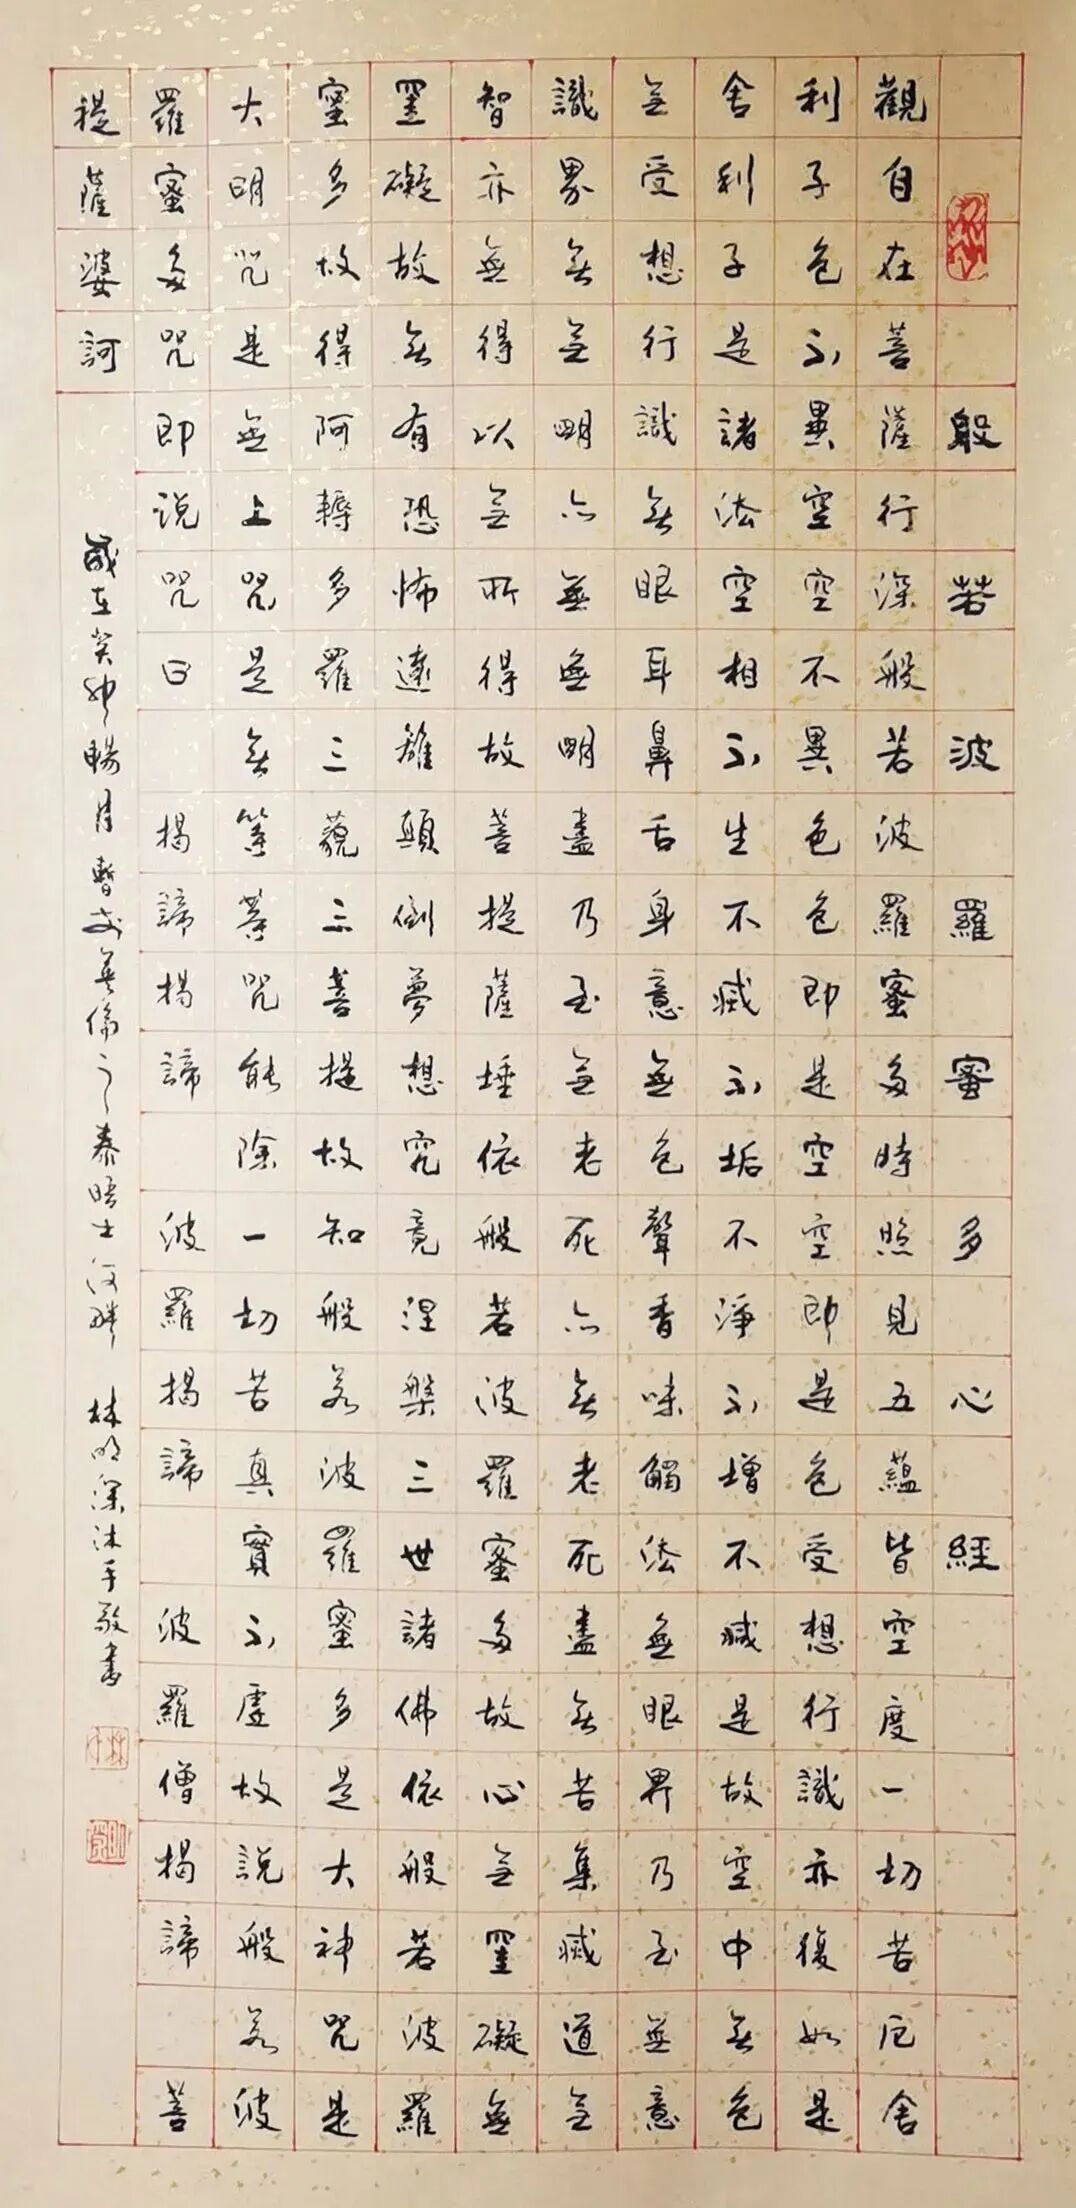 般若波羅蜜多心經
觀自在菩薩行深般若波羅蜜多時照見五蘊皆空度一切苦厄舍
利子色不異空空不異色色即是空空即是色受想行識亦復如是
舍利子是諸法空相不生不滅不垢不淨不增不減是故空中無色
無受想行識無眼耳鼻舌身意無色聲香味觸法無眼界乃至無意
識界無無明亦無無明盡乃至無老死亦無老死盡無苦集滅道無
智亦無得以無所得故菩提薩埵依般若波羅蜜多故心無罣礙無
罣礙故無有恐怖遠離顛倒夢想究竟涅槃三世諸佛依般若波羅
蜜多故得阿耨多羅三藐三菩提故知般若波羅蜜多是大神咒是
大明咒是無上咒是無等等咒能除一切苦真實不虛故說般若波
羅蜜多咒即說咒曰 揭諦揭諦 波羅揭諦 波羅僧揭諦 菩
提薩婆訶
歲在癸卯暢月 林明深沐手敬書